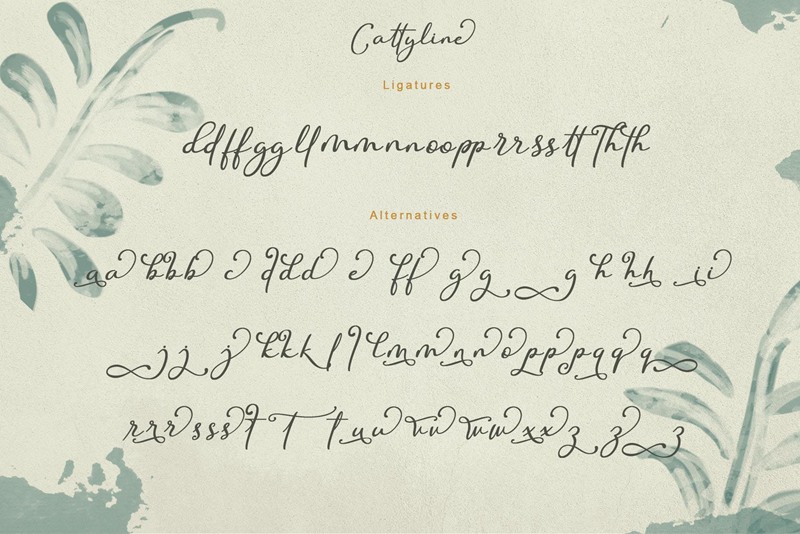 Cattyline
Ligatures
ddffggllmmnnoopprrssttThth
Alternatives
aa bbb c ddd e ff gg g h hh ii
jj j kkk l l lmmnnoppp qqq
rrrssst T t uu vv ww xx z z z